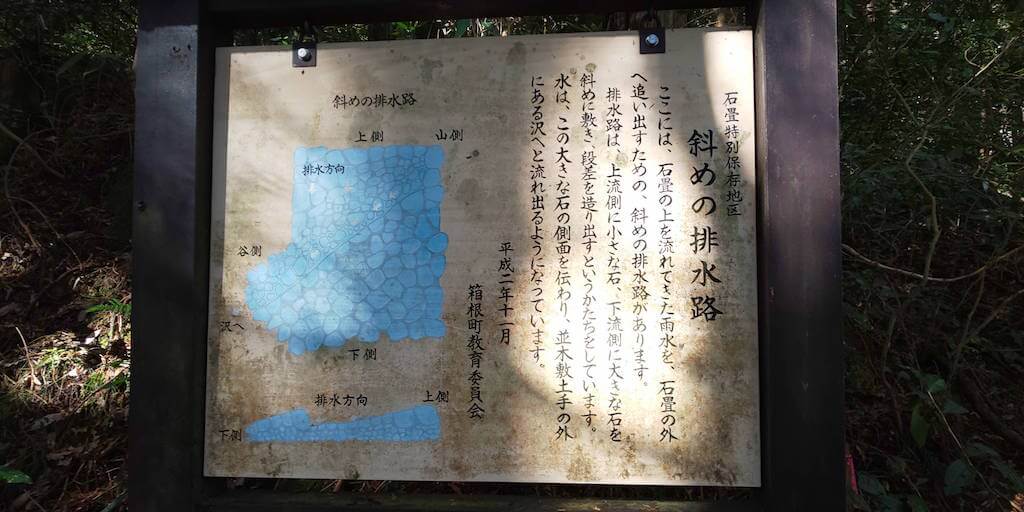 石畳特別保存地区
斜めの排水路
ここには、石畳の上を流れてきた雨水を、石畳の外
へ追い出すための、斜めの排水路があります。
排水路は、上流側に小さな石、下流側に大きな石を
斜めに敷き、段差を造り出すというかたちをしています。
水は、この大きな石の側面を伝わり、並木敷土手の外
にある沢へと流れ出るようになっています。
平成二年十一月
箱根町教育委員会
斜めの排水路
上側
山側
排水方向
谷側
沢へ
下側
排水方向
上側
下側